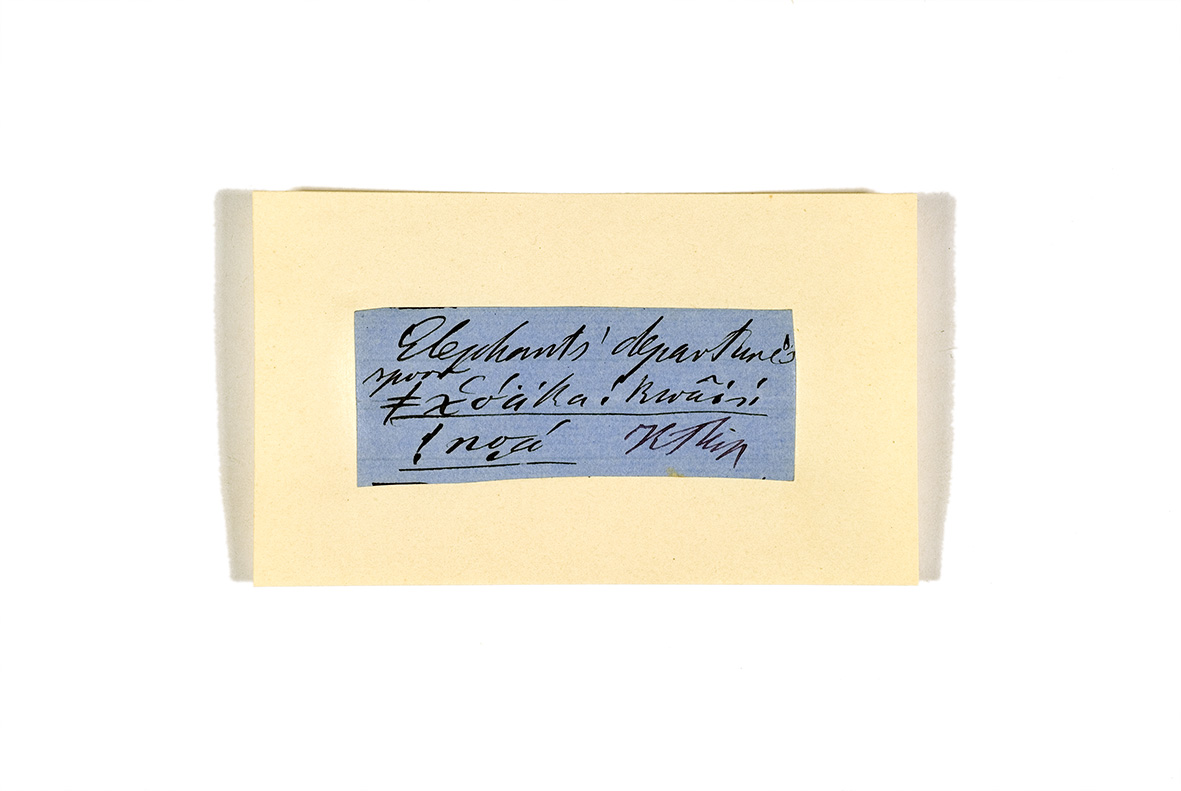 Elephants' departure's
spoor
ǂχóä́ka ! kwã́ï!
! noä́
K Thin